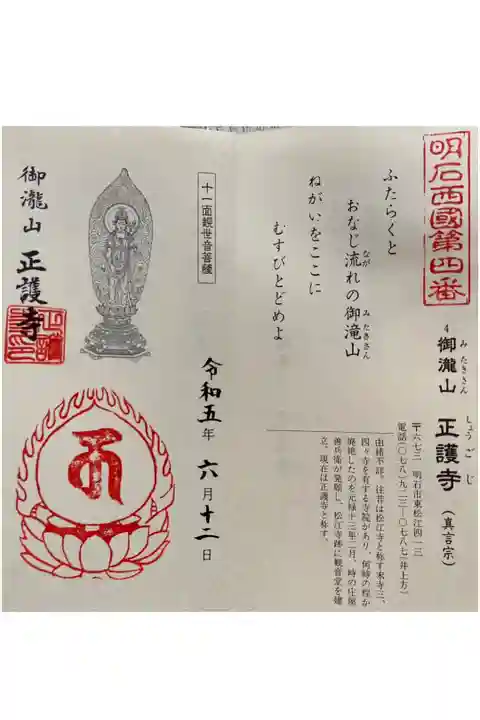 明石西國第四番
4 御瀧山 正護寺（真言宗）
み たきさん しょう ご じ
〒六七三 明石市東松江四一三
電話（〇七八）九二三ー〇七八七（井上方）
由緒不詳。往昔は松江寺と称す末寺三、
四ヶ寺を有する寺院があり、何時の程か
廃絶したのを元禄十三年二月、時の庄屋
善兵衛が発願し、松江寺跡に観音堂を建
立、現在は正護寺と称す。
ふたらくと
おなじ流れの御滝山
なが み たきさん
ねがいをここに
むすびとどめよ
十一面観世音菩薩
令和五年 六月十二日
御瀧山 正護寺